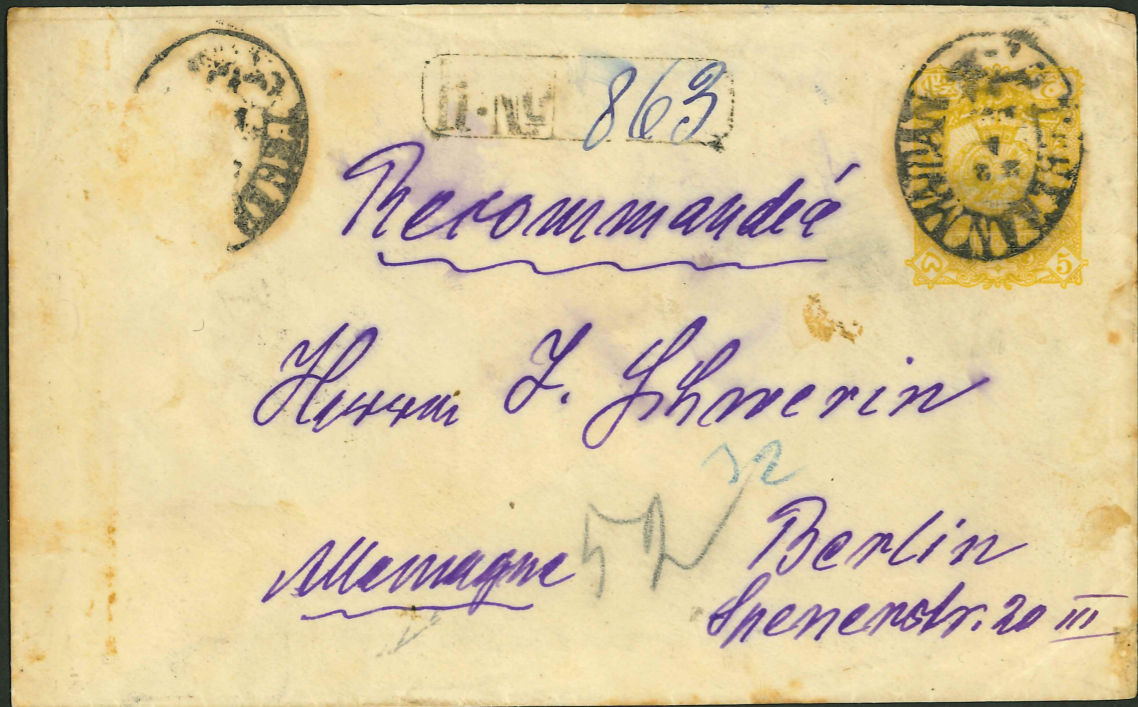 863
Recommandée
Herrn J. Schwerin
Allemagne 52
Berlin
Spenerstr. 20 III
5